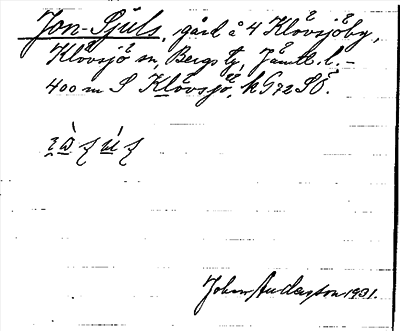 Jon-Sjuls, gård å 4 Klövsjöby,
Klövsjö sn, Bergs tg, Jämtl. l. –
400 m S Klövsjö, k G 72 SÖ.
Johan Anderzson 1931.